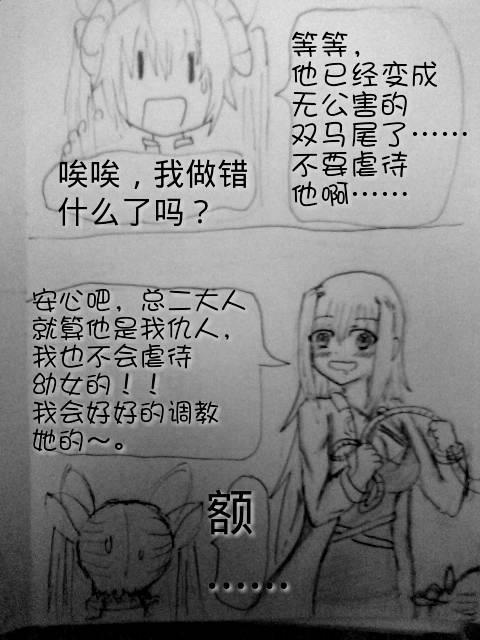 等等，
他已经变成
无公害的
双马尾了……
不要虐待
他啊……
唉唉，我做错
什么了吗？
安心吧，总二大人
就算他是我仇人，
我也不会虐待
幼女的！！
我会好好的调教
她的~。
额
……